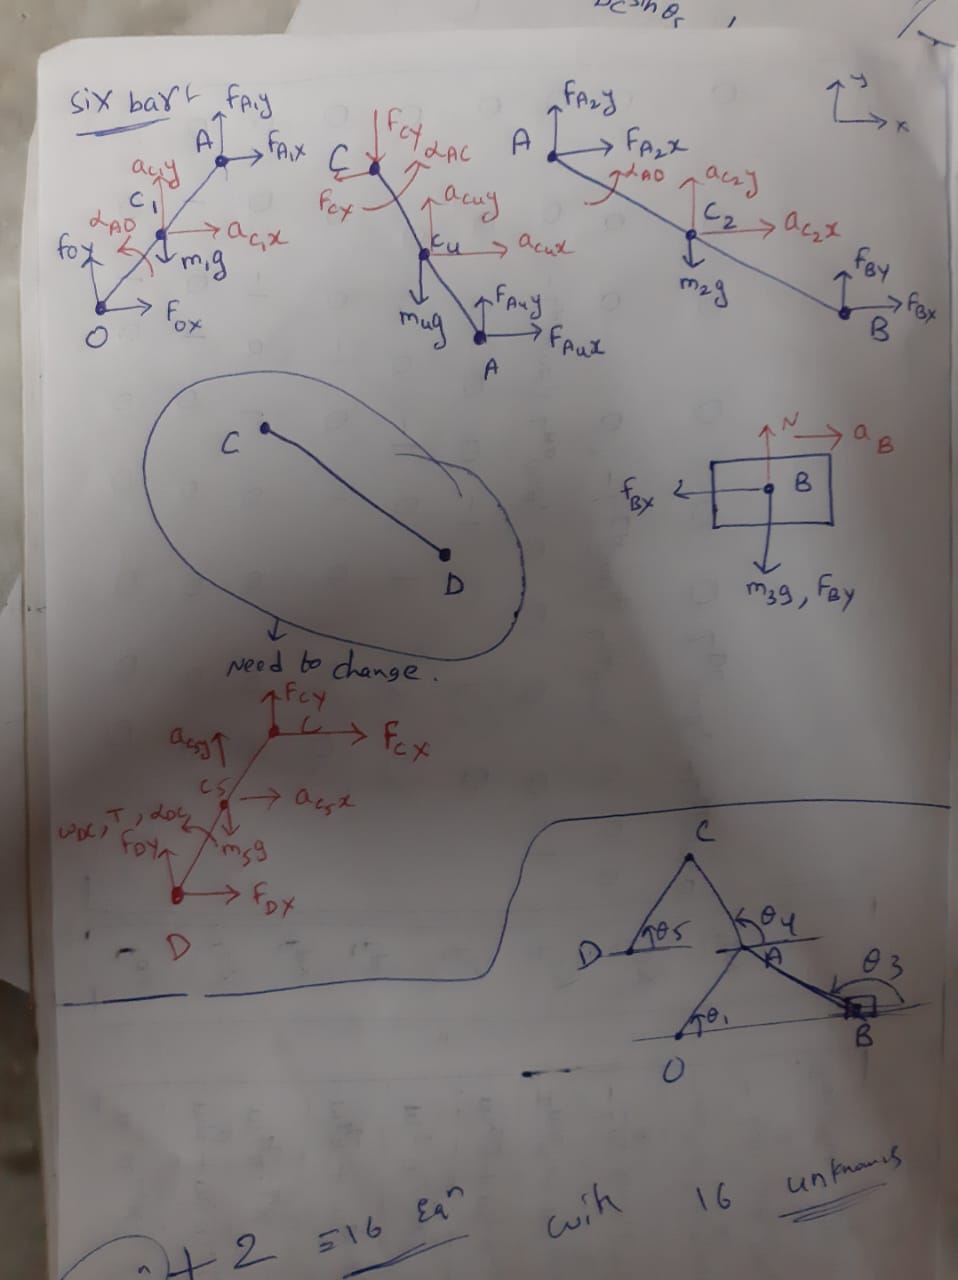 DC sin θ5 ,
six bar
FA1y
A
FA1x
aC1y
C1
αAO
FOY
aC1x
m1g
FOX
O
FCY
C
αAC
FCX
aC4y
C4
aC4x
m4g
FA4y
FA4x
A
FA2y
A
FA2x
αAO
aC2y
C2
aC2x
m2g
FBY
FBX
B
y
x
C
D
Need to change.
N
aB
FBX
B
m3g, FBY
FCY
C
FCX
aC5y
C5
aC5x
ωDC, T, αDC
FDY
m5g
FDX
D
C
D
θ5
θ4
A
θ3
θ1
B
O
+ 2 = 16 Eqn with 16 unknowns